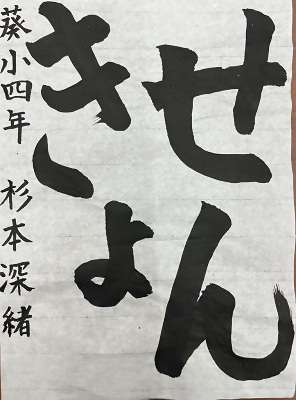 せん
きょ
葵小四年 杉本深緒